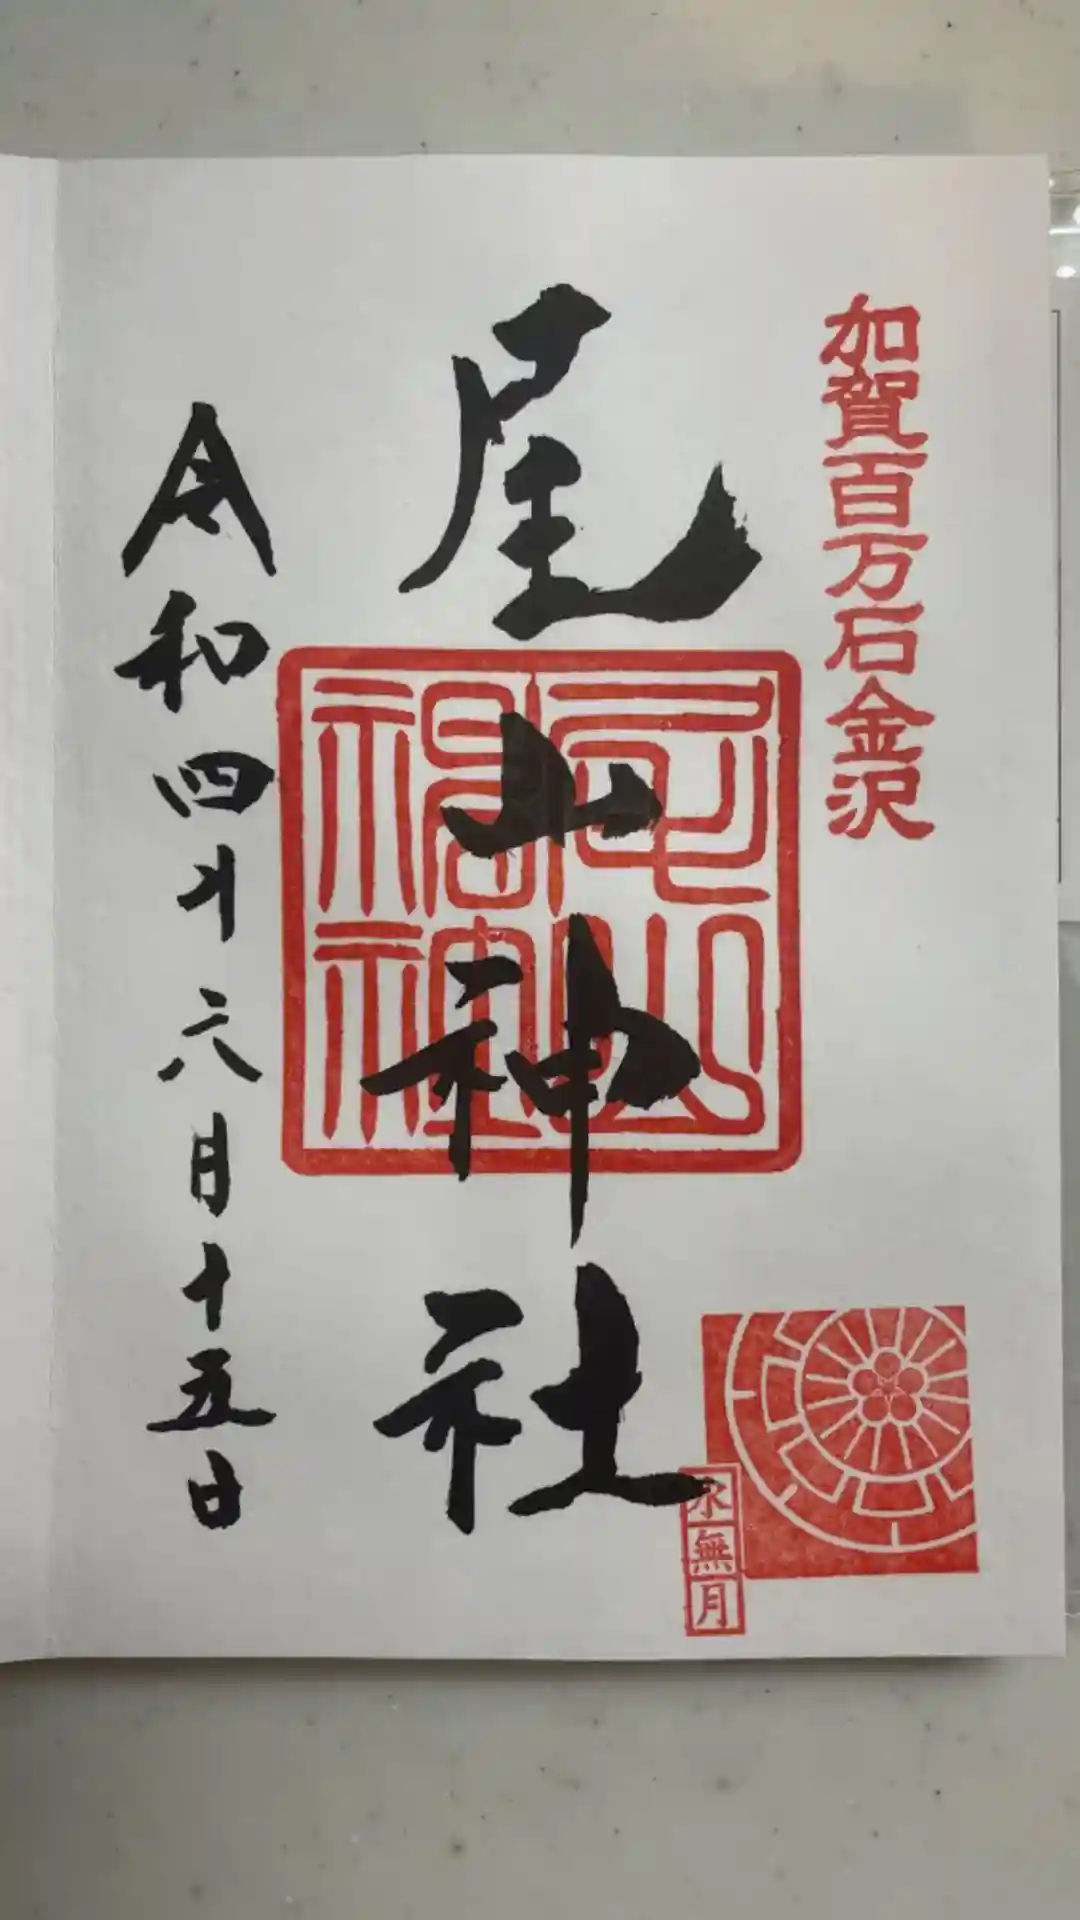 加賀百万石金沢
尾山神社
尾山神社
水無月
令和四年六月十五日